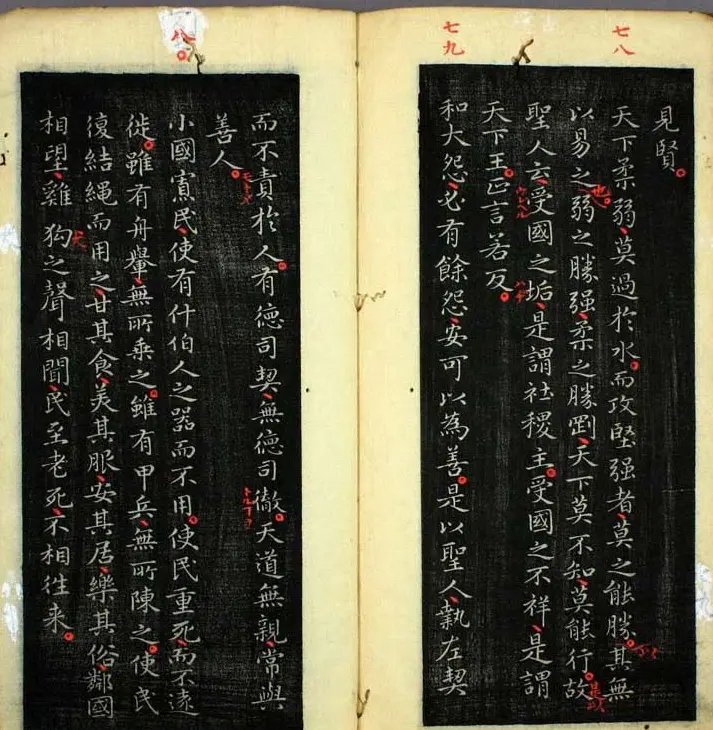 七八
七九
見賢
天下柔弱莫過於水而攻堅强者莫之能勝其無
以易之弱之勝强柔之勝剛天下莫不知莫能行故
也
是以
聖人云受國之垢是謂社稷主受國之不祥是謂
天下王正言若反
和大怨必有餘怨安可以為善是以聖人執左契
八〇
而不責於人有德司契無德司徹天道無親常與
モトメ
善人
小國寡民使有什伯人之器而不用使民重死而不遠
徙雖有舟轝無所乘之雖有甲兵無所陳之使民
復結繩而用之甘其食美其服安其居樂其俗鄰國
相望雞狗之聲相聞民至老死不相往来
犬